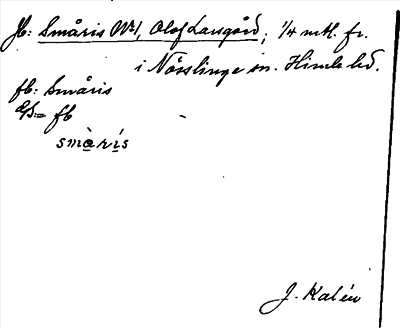 Jb: Småris Nr 1, Olof Larsgård; 1/4 mtl. fr.
i Nösslinge sn. Himle hd.
fb: Småris
= fb
småris
J. Kalén